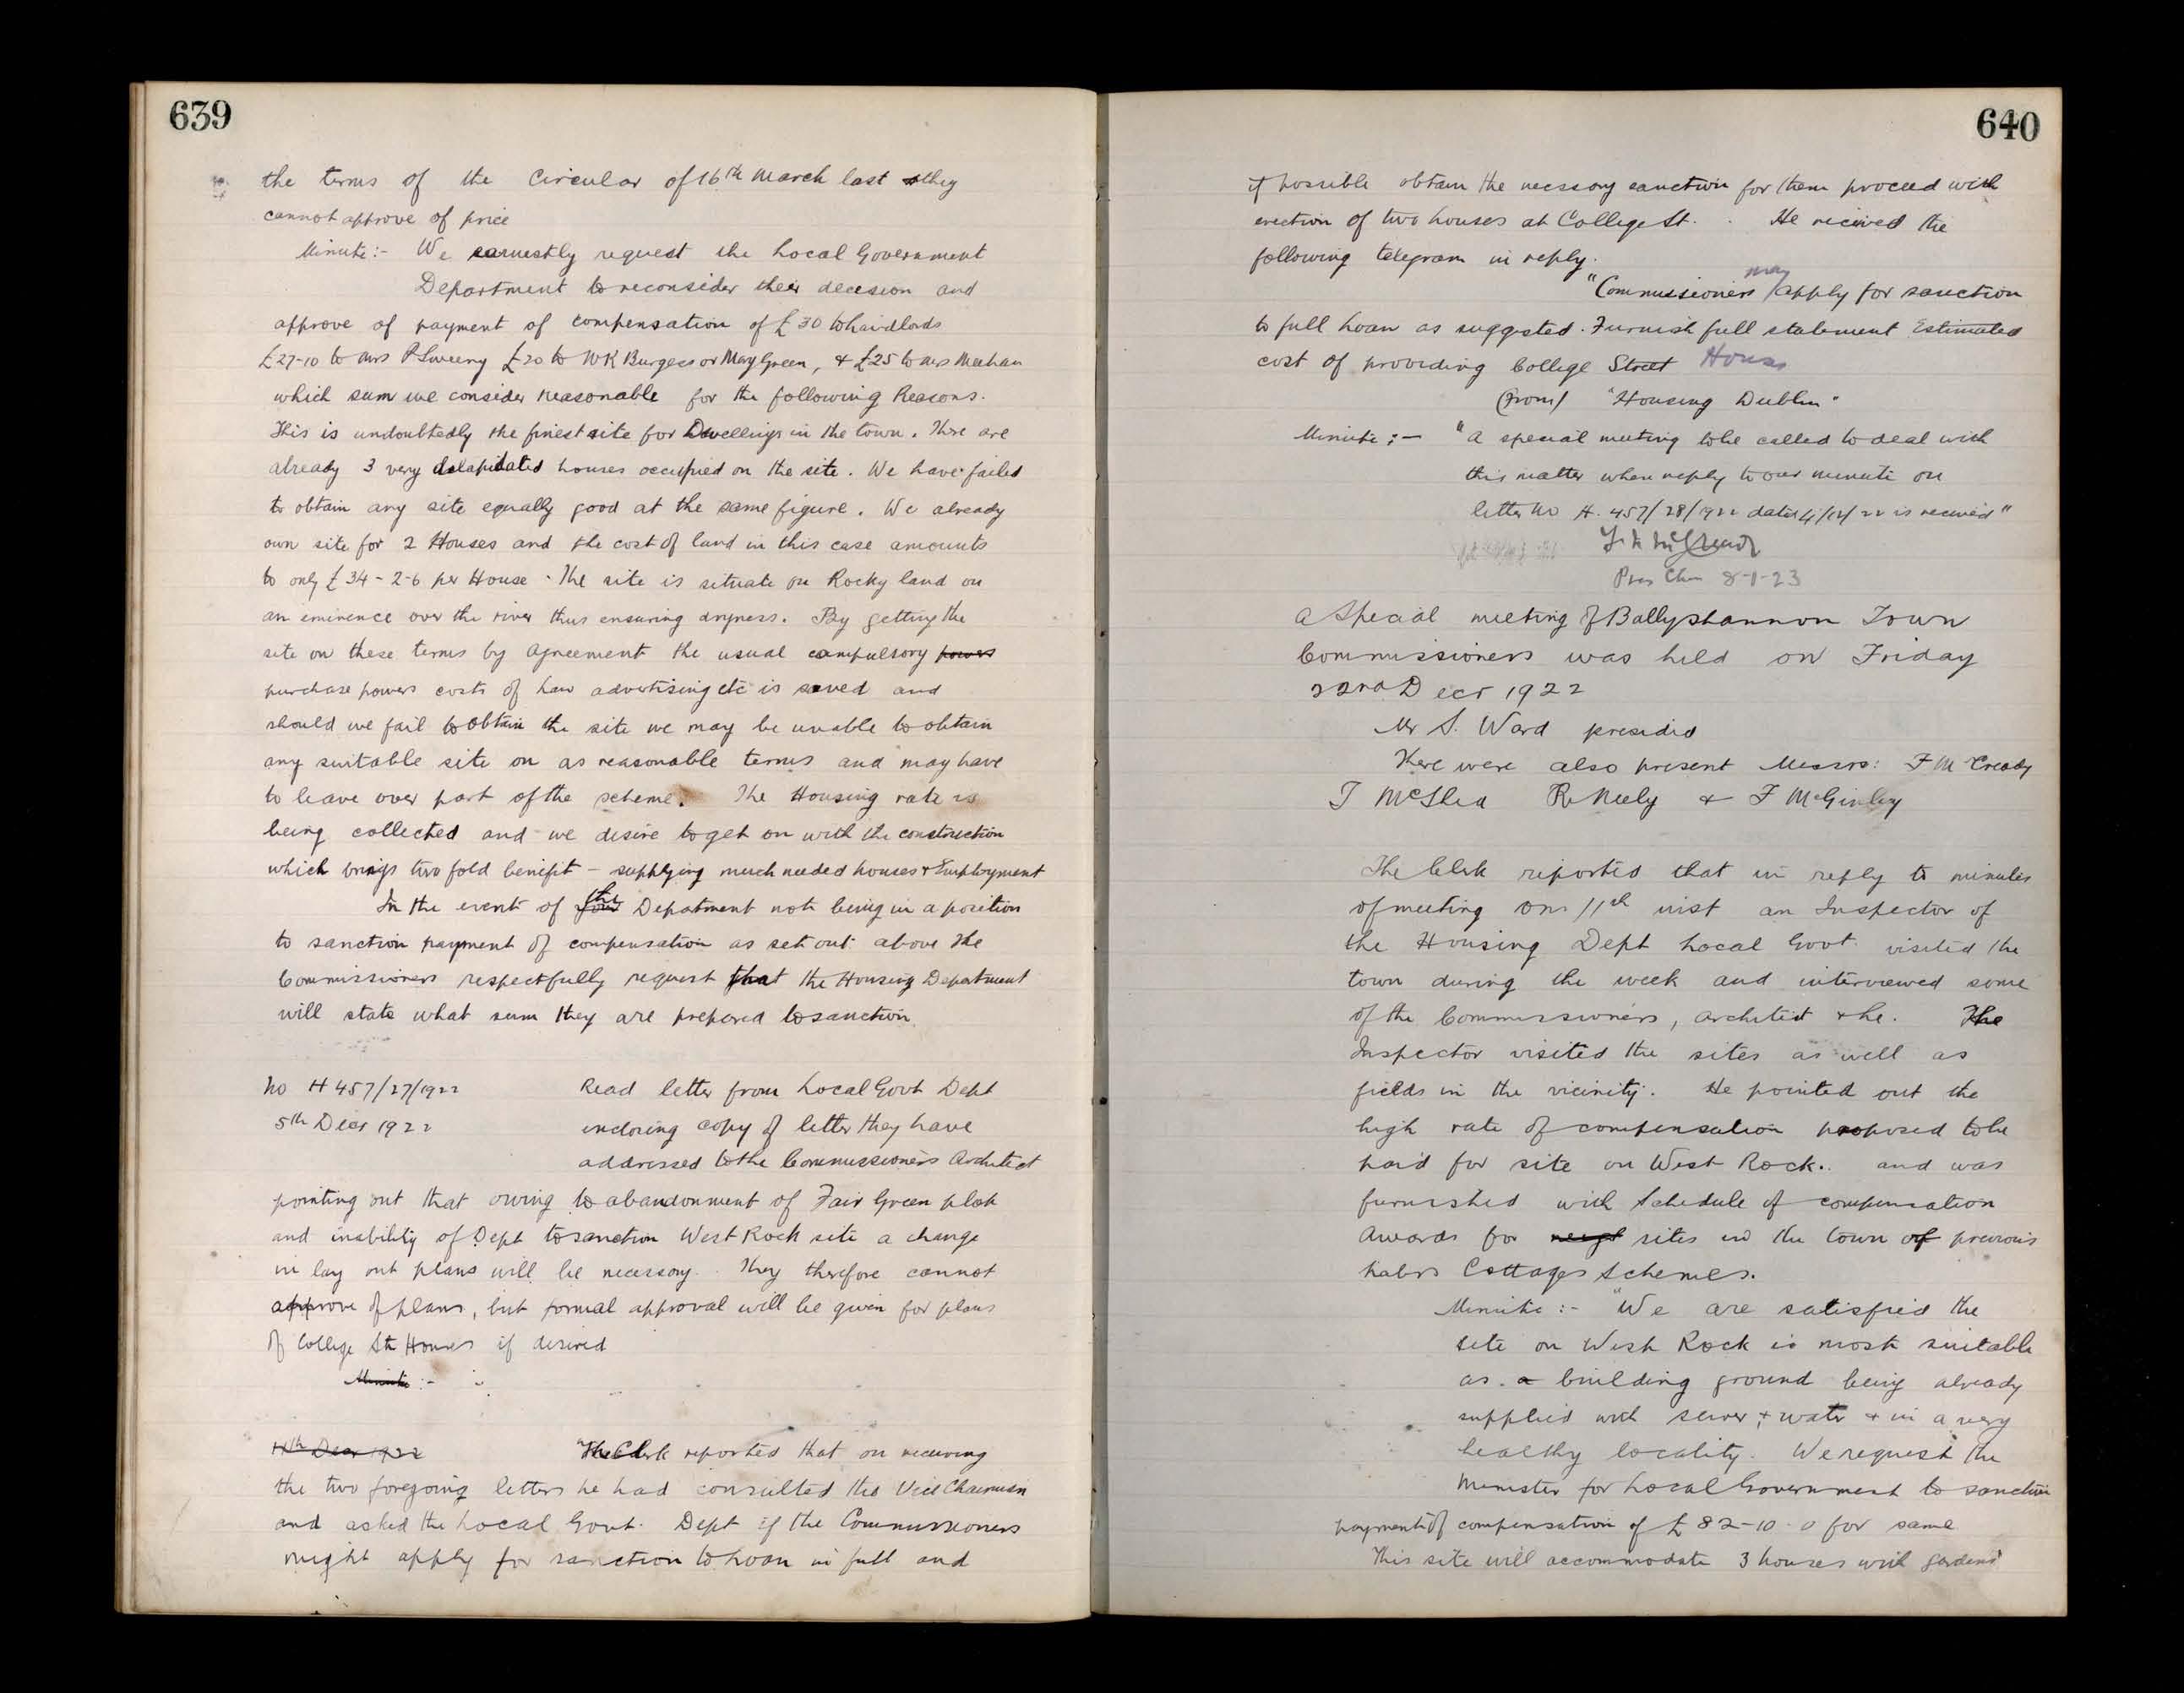 639
the terms of the Circular of 16th March last they
cannot approve of price
Minute:- We earnestly request the Local Government
Department to reconsider their decision and
approve of payment of compensation of £30 to Landlords
£27-10 to Mrs P Sweeny £20 to WK Burgess or May Green, & £25 to Mrs Meehan
which sum we consider reasonable for the following Reasons.
This is undoubtedly the finest site for Dwellings in the town. There are
already 3 very delapidated houses occupied on the site. We have failed
to obtain any site equally good at the same figure. We already
own site for 2 Houses and the cost of land in this case amounts
to only £34-2-6 per House. The site is situate on Rocky land on
an eminence over the river thus ensuring dryness. By getting the
site on these terms by agreement the usual compulsory powers
purchase powers costs of Law advertising etc is saved and
should we fail to obtain the site we may be unable to obtain
any suitable site on as reasonable terms and may have
to leave over part of the scheme. The Housing rate is
being collected and we desire to get on with the construction
which brings two fold benifit - supplying much needed houses & Employment
In the event of your the Depatment not being in a position
to sanction payment of compensation as set out above the
Commissioners respectfully request that the Housing Department
will state what sum they are prepared to sanction
No H 457/27/1922 Read letter from Local Govt Dept
5th Decr 1922 inclosing copy of letter they have
addressed to the Commissioners Architect
pointing out that owing to abandonment of Fair Green plot
and inability of Dept to sanction West Rock site a change
in lay out plans will be necessary. They therefore cannot
approve of plans, but formal approval will be given for plans
of College St Houses if desired
Minute:-
11th Decr 1922 The Clerk reported that on receiving
the two foregoing letters he had consulted the Vice Chairman
and asked the Local Govt. Dept if the Commissioners
might apply for sanction to Loan in full and
640
if possible obtain the necssary sanction for them proceed with
erection of two houses at College St. He received the
following telegram in reply.
"Commissioners may apply for sanction
to full Loan as suggsted. Furnish full statement Estimated
cost of providing College Street Houses
(from) "Housing Dublin"
Minute:- "A special meeting to be called to deal with
this matter when reply to our minute on
letter No H. 457/28/1922 dated 4/12/22 is received"
Pres Chn 8-1-23
A Special meeting of Ballyshannon Town
Commissioners was held on Friday
22nd Decr 1922
Mr S. Ward presided
There were also present Messrs: F McCready
J McShea R Neely & F McGinley
The Clerk reported that in reply to minutes
of meeting on 11th inst an Inspector of
the Housing Dept Local Govt. visited the
town during the week and interviewed some
of the Commissioners, Architect & he. The
Inspector visited the sites as well as
fields in the vicinity. He pointed out the
high rate of compensation proposed to be
paid for site on West Rock. and was
furnished with Schedule of compensation
Awards for sites in the town of previous
Labrs Cottages Schemes.
Minute:- "We are satisfied the
site on West Rock is most suitable
as a building ground being already
supplied with sewer & water & in a very
healthy locality. We request the
Minister for Local Government to sanction
payment of compensation of £82-10-0 for same
This site will accommodate 3 houses with gardens